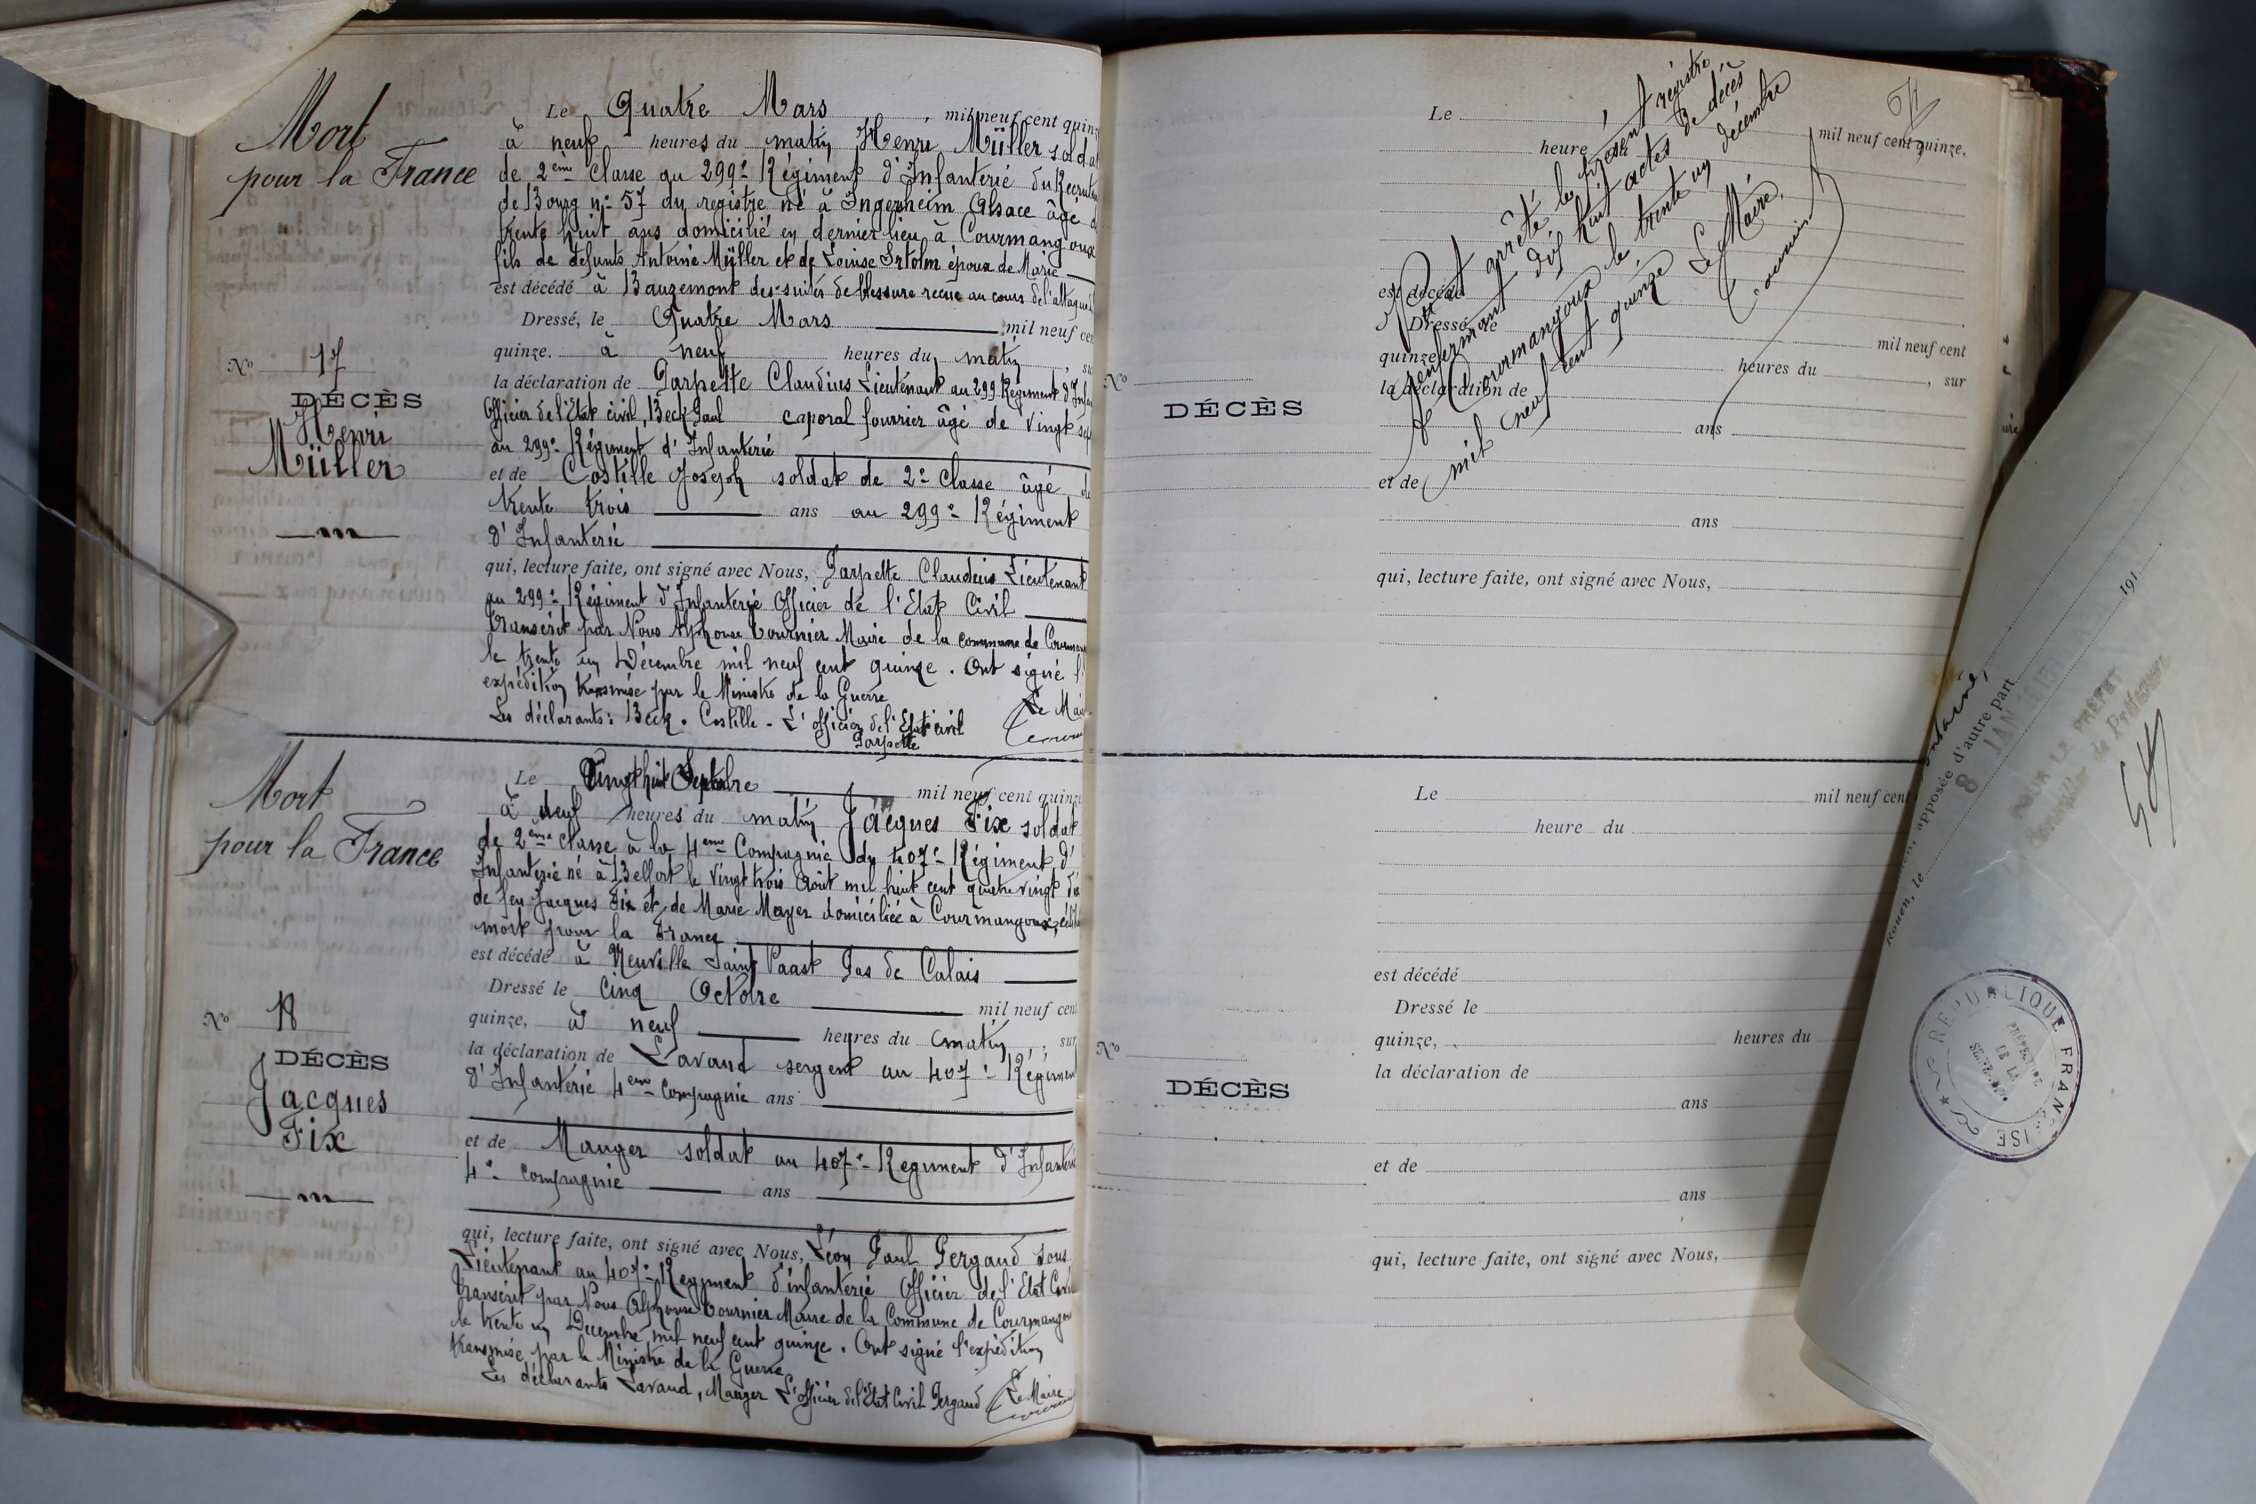 Mort
pour la France
Le Quatre Mars, mil neuf cent quinze
à neuf heures du matin Henri Müller soldat
de 2ème Classe au 299e Régiment d'Infanterie du Recrutem
de Bourg n° 57 du registre né à Ingersheim Alsace âgé de
trente huit ans domicilié en dernier lieu à Courmangoux
fils de défunts Antoine Müller et de Louise époux de Marie
est décédé à Bauzemont des suites de blessure recue au cours de l'attaque
Dressé, le Quatre Mars mil neuf cent
quinze. à neuf heures du matin, sur
la déclaration de Parpette Claudius Lieutenant au 299 Régiment d'Infan
Officier de l'Etat civil, Beck Paul caporal fourrier âgé de Vingt sept
au 299e Régiment d'Infanterie
et de Costille Joseph soldat de 2e Classe âgé de
trente trois ans au 299e Régiment
d'Infanterie
qui, lecture faite, ont signé avec Nous, Parpette Claudius Lieutenant
au 299e Régiment d'Infanterie Officier de l'Etat Civil
Transcrit par Nous Alphonse Cournier Maire de la commune de Courman
le trente un Décembre mil neuf cent quinze. Ont signé l'
expédition transmise par le Ministre de la Guerre
Les déclarants: Beck. Costille - L'officier de l'Etat civil
Parpette
Le Maire
No 17
DÉCÈS
Henri
Müller
Mort
pour la France
Le Vingt huit Septembre mil neuf cent quinze
à neuf heures du matin Jacques Fix soldat
de 2ème classe à la 4eme Compagnie du 407e Régiment d'
Infanterie né à Belfort le vingt trois Août mil huit cent quatre vingt dix
de feu Jacques Fix et de Marie Mayer domiciliée à Courmangoux,
mort pour la France
est décédé à Neuville Saint Vaast Pas de Calais
Dressé le Cinq Octobre mil neuf cent
quinze, à neuf heures du matin, sur
la déclaration de Lavaud sergent au 407e Régiment
d'Infanterie 4eme Compagnie ans
et de Mauger soldat au 407e Régiment d'Infanterie
4e compagnie ans
qui, lecture faite, ont signé avec Nous, Léon Paul Pergaud sous
Lieutenant au 407e Régiment d'infanterie Officier de l'Etat Civil
Transcrit par Nous Alphonse Cournier Maire de la Commune de Courmangou
le trente un Decembre mil neuf cent quinze. Ont signé l'expédition
transmise par le Ministre de la Guerre
Les déclarants Lavaud, Mauger L'officier de l'Etat Civil Pergaud
Le Maire
No 18
DÉCÈS
Jacques
Fix
Le mil neuf cent quinze.
heure du
est décédé
Dressé le mil neuf cent
quinze heures du, sur
la déclaration de
ans
et de
ans
qui, lecture faite, ont signé avec Nous,
No
DÉCÈS
arrêté le présent régistre
renfermant dix huit actes de décès
à Courmangoux le trente un décembre
mil neuf cent quinze
Le Maire,
Cournier
Le mil neuf cent
heure du
est décédé
Dressé le
quinze, heures du
la déclaration de
ans
et de
ans
qui, lecture faite, ont signé avec Nous,
No
DÉCÈS
apposée d'autre part
Rouen, le 191
8 JAN
POUR LE PRÉFET
Conseiller de Préfecture
RÉPUBLIQUE FRANÇAISE